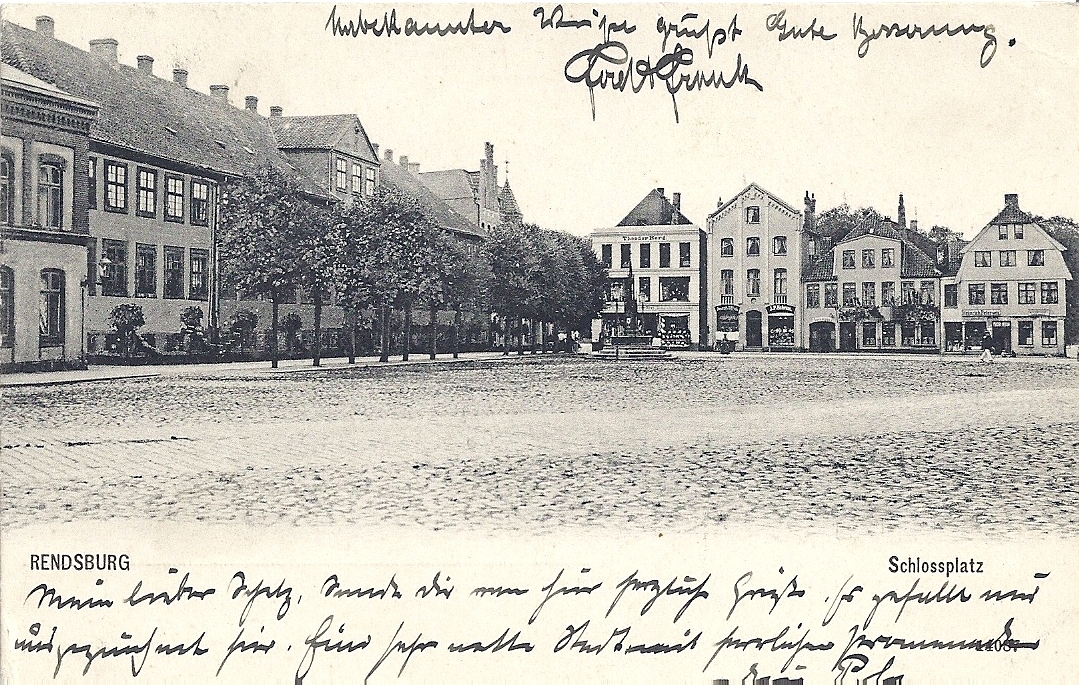 Unbekannter Weise grüßt Gute Besserung.
Theodor Berg
RENDSBURG
Schlossplatz
Mein lieber Schatz, Sende Dir von hier herzliche Grüße. Es gefällt mir
ausgezeichnet hier. Eine sehr nette Stadt mit herrlicher Promenade
dein